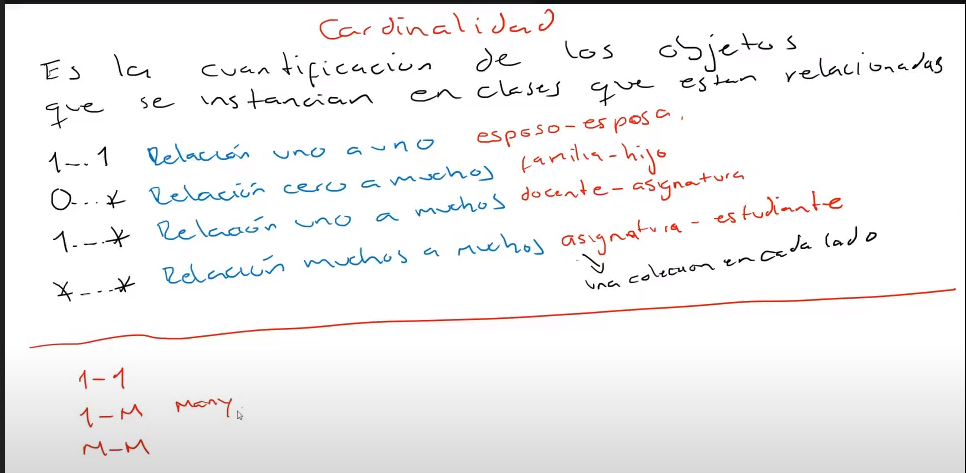 Cardinalidad
Es la cuantificacion de los objetos
que se instancian en clases que estan relacionadas
1...1 Relación uno a uno esposo-esposa.
0...* Relación cero a muchos familia-hijo
1...* Relación uno a muchos docente-asignatura
*...* Relación muchos a muchos asignatura-estudiante
una coleccion en cada lado
1-1
1-M Many
M-M